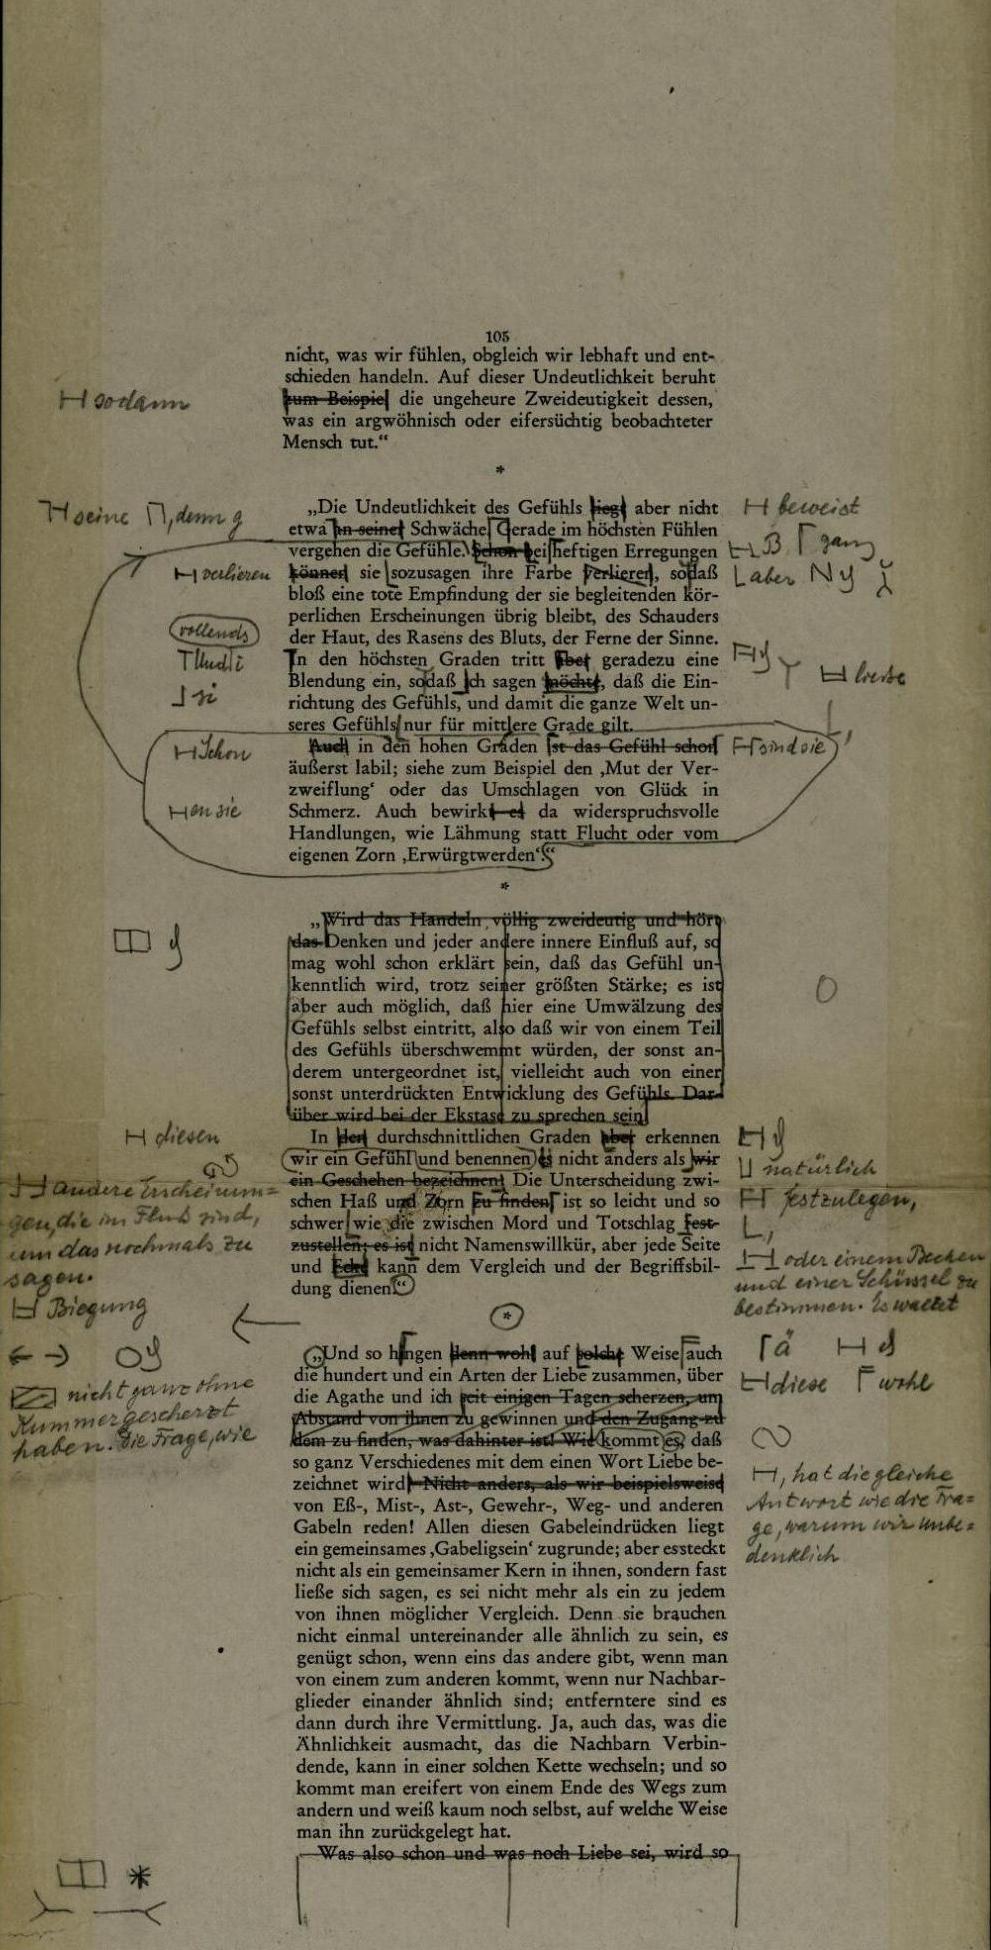 105
nicht, was wir fühlen, obgleich wir lebhaft und ent-
schieden handeln. Auf dieser Undeutlichkeit beruht
H sodann
zum Beispiel die ungeheure Zweideutigkeit dessen,
was ein argwöhnisch oder eifersüchtig beobachteter
Mensch tut.“
*
„Die Undeutlichkeit des Gefühls liegt aber nicht
H beweist
H seine Π, denn g
etwa in seiner Schwäche. Gerade im höchsten Fühlen
vergehen die Gefühle. Schon bei heftigen Erregungen
H B Γ ganz
H verlieren
können sie sozusagen ihre Farbe verlieren, sodaß
L aber
bloß eine tote Empfindung der sie begleitenden kör-
perlichen Erscheinungen übrig bleibt, des Schauders
vollends
der Haut, des Rasens des Bluts, der Ferne der Sinne.
In den höchsten Graden tritt aber geradezu eine
Blendung ein, sodaß ich sagen möchte, daß die Ein-
richtung des Gefühls, und damit die ganze Welt un-
seres Gefühls nur für mittlere Grade gilt.
H Schon
Auch in den hohen Graden ist das Gefühl schon
H sind sie
äußerst labil; siehe zum Beispiel den ‚Mut der Ver-
zweiflung‘ oder das Umschlagen von Glück in
H en sie
Schmerz. Auch bewirkt es da widerspruchsvolle
Handlungen, wie Lähmung statt Flucht oder vom
eigenen Zorn ‚Erwürgtwerden‘.“
*
„Wird das Handeln völlig zweideutig und hört
das Denken und jeder andere innere Einfluß auf, so
mag wohl schon erklärt sein, daß das Gefühl un-
kenntlich wird, trotz seiner größten Stärke; es ist
aber auch möglich, daß hier eine Umwälzung des
Gefühls selbst eintritt, also daß wir von einem Teil
des Gefühls überschwemmt würden, der sonst an-
derem untergeordnet ist, vielleicht auch von einer
sonst unterdrückten Entwicklung des Gefühls. Dar-
über wird bei der Ekstase zu sprechen sein.
H diesen
In den durchschnittlichen Graden aber erkennen
wir ein Gefühl und benennen es nicht anders als wir
natürlich
H andere Erscheinun=
gen, die im Fluß sind,
um das nochmals zu
sagen.
ein Geschehen bezeichnen! Die Unterscheidung zwi-
schen Haß und Zorn zu finden, ist so leicht und so
H festzulegen,
schwer wie die zwischen Mord und Totschlag fest-
zustellen; es ist nicht Namenswillkür, aber jede Seite
H oder einem Becken
und einer Schüssel zu
bestimmen. Es waltet
H Biegung
und Ecke kann dem Vergleich und der Begriffsbil-
dung dienen.“
*
„Und so hängen denn wohl auf solche Weise auch
Γ ä
die hundert und ein Arten der Liebe zusammen, über
H diese Γ wohl
nicht ganz ohne
Kummer gescherzt
haben. Die Frage, wie
die Agathe und ich seit einigen Tagen scherzen, um
Abstand von ihnen zu gewinnen und den Zugang zu
dem zu finden, was dahinter ist! Wie kommt es, daß
so ganz Verschiedenes mit dem einen Wort Liebe be-
zeichnet wird? Nicht anders, als wir beispielsweise
H, hat die gleiche
Antwort wie die Fra=
ge, warum wir unbe=
denklich
von Eß-, Mist-, Ast-, Gewehr-, Weg- und anderen
Gabeln reden! Allen diesen Gabeleindrücken liegt
ein gemeinsames ‚Gabeligsein‘ zugrunde; aber es steckt
nicht als ein gemeinsamer Kern in ihnen, sondern fast
ließe sich sagen, es sei nicht mehr als ein zu jedem
von ihnen möglicher Vergleich. Denn sie brauchen
nicht einmal untereinander alle ähnlich zu sein, es
genügt schon, wenn eins das andere gibt, wenn man
von einem zum anderen kommt, wenn nur Nachbar-
glieder einander ähnlich sind; entferntere sind es
dann durch ihre Vermittlung. Ja, auch das, was die
Ähnlichkeit ausmacht, das die Nachbarn Verbin-
dende, kann in einer solchen Kette wechseln; und so
kommt man ereifert von einem Ende des Wegs zum
andern und weiß kaum noch selbst, auf welche Weise
man ihn zurückgelegt hat.
Was also schon und was noch Liebe sei, wird so
*